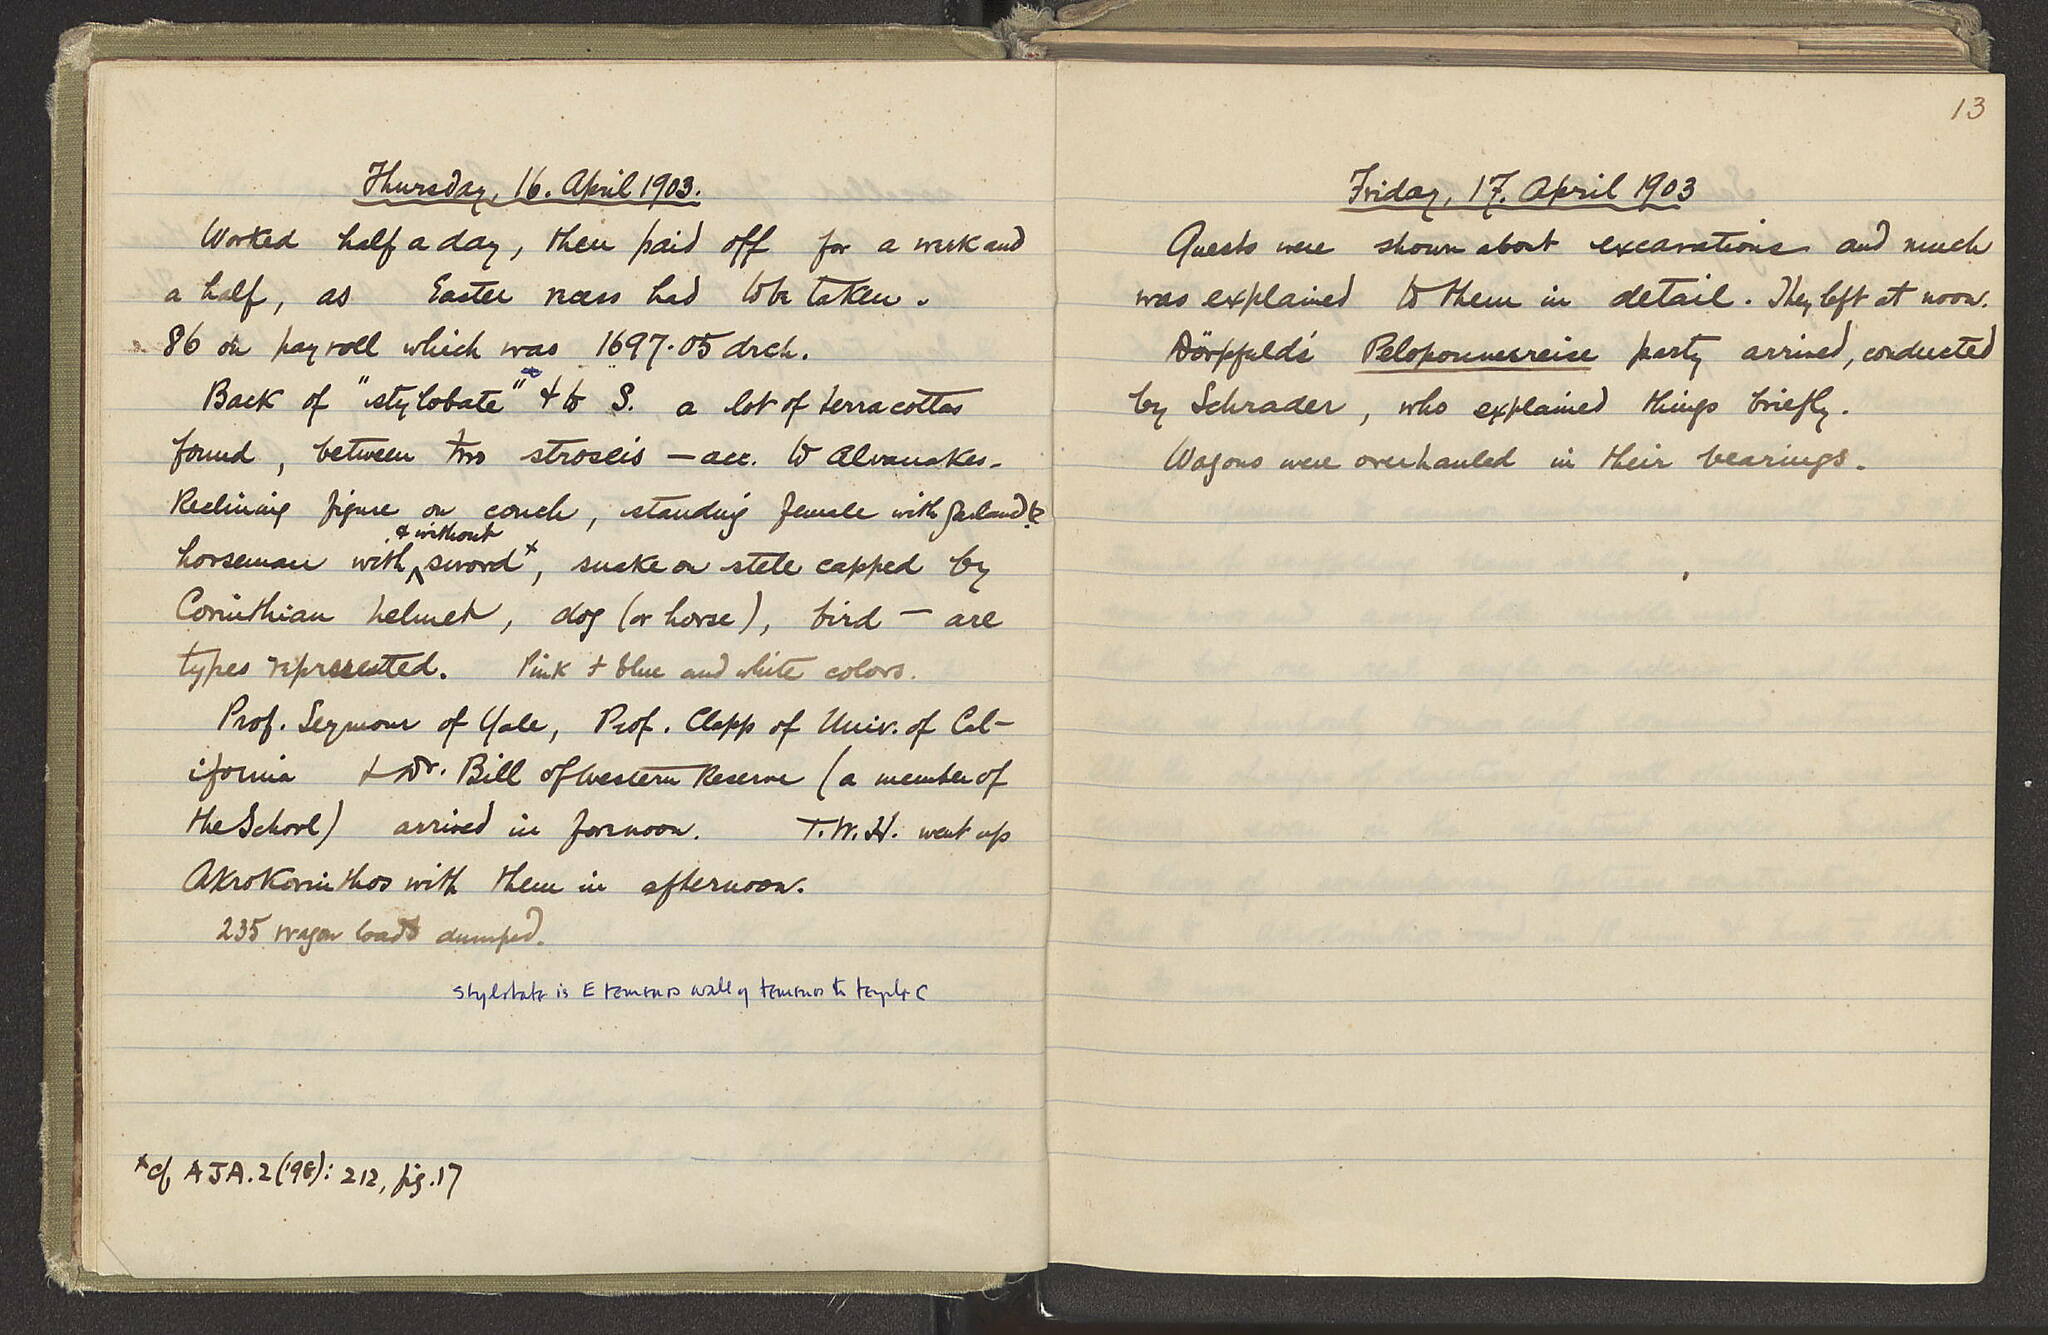 Thursday, 16. April 1903.
Worked half a day, then paid off for a week and
a half, as Easter recess had to be taken.
86 on payroll which was 1697.05 drch.
Back of "stylobate" & to S. a lot of terracottas
found, between two stroseis — acc. to Alvanakes.
Reclining figure on couch, standing female with garland,
& without
horseman with ‸ sword ×, snake on stele capped by
Corinthian helmet, dog (or horse), bird — are
types represented. Pink + blue and white colors.
Prof. Seymour of Yale, Prof. Clapp of Univ. of Cal-
ifornia + Dr. Bill of Western Reserve (a member of
the School) arrived in forenoon. T.W.H. went up
Akrokorinthos with them in afternoon.
235 wagon loads dumped.
stylobate is E temenos wall of temenos to temple C
× cf AJA. 2 ('98): 212, fig. 17
13
Friday, 17. April 1903
Guests were shown about excavations and much
was explained to them in detail. They left at noon.
Dörpfeld's Peloponnesreise party arrived, conducted
by Schrader, who explained things briefly.
Wagons were overhauled in their bearings.